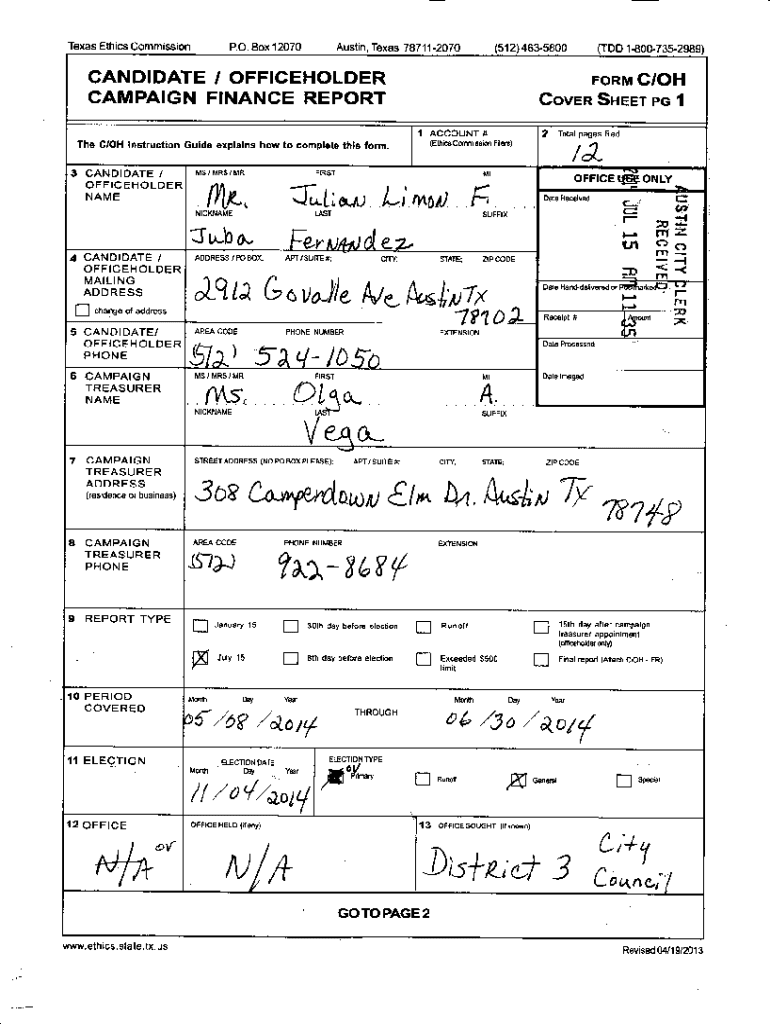 Texas Ethics Commission P.O. Box 12070 Austin, Texas 78711-2070 (512) 463-5800 (TDD 1-800-735-2989)
CANDIDATE / OFFICEHOLDER
CAMPAIGN FINANCE REPORT
FORM C/OH
COVER SHEET PG 1
The C/OH Instruction Guide explains how to complete this form.
1 ACCOUNT #
(Ethics Commission Filers)
2 Total pages filed
12
3 CANDIDATE /
OFFICEHOLDER
NAME
MS / MRS / MR FIRST MI
Mr. Julian Limon F.
NICKNAME LAST SUFFIX
Juba Fernandez
OFFICE USE ONLY
Date Received
AUSTIN CITY CLERK
RECEIVED
JUL 15 11 35
4 CANDIDATE /
OFFICEHOLDER
MAILING
ADDRESS
change of address
ADDRESS / PO BOX; APT / SUITE #; CITY; STATE; ZIP CODE
2912 Govalle Ave Austin TX
78702
Date Hand-delivered or Postmarked
Receipt # Amount
Date Processed
Date Imaged
5 CANDIDATE/
OFFICEHOLDER
PHONE
AREA CODE PHONE NUMBER EXTENSION
(512) 524-1050
6 CAMPAIGN
TREASURER
NAME
MS / MRS / MR FIRST MI
Ms. Olga A.
NICKNAME LAST SUFFIX
Vega
7 CAMPAIGN
TREASURER
ADDRESS
(residence or business)
STREET ADDRESS (NO PO BOX PLEASE); APT / SUITE #; CITY; STATE; ZIP CODE
308 Camperdown Elm Dr. Austin TX
78748
8 CAMPAIGN
TREASURER
PHONE
AREA CODE PHONE NUMBER EXTENSION
(512) 922-8684
9 REPORT TYPE
January 15 30th day before election Runoff 15th day after campaign
treasurer appointment
(officeholder only)
X July 15 8th day before election Exceeded $500
limit
Final report (Attach COH - FR)
10 PERIOD
COVERED
Month Day Year THROUGH Month Day Year
05/08/2014 06/30/2014
11 ELECTION
ELECTION DATE
Month Day Year
11/04/2014
ELECTION TYPE
ov
Primary Runoff X General Special
12 OFFICE
N/A ov
OFFICE HELD (if any)
N/A
13 OFFICE SOUGHT (if known)
District 3 City
Council
GO TO PAGE 2
www.ethics.state.tx.us Revised 04/19/2013